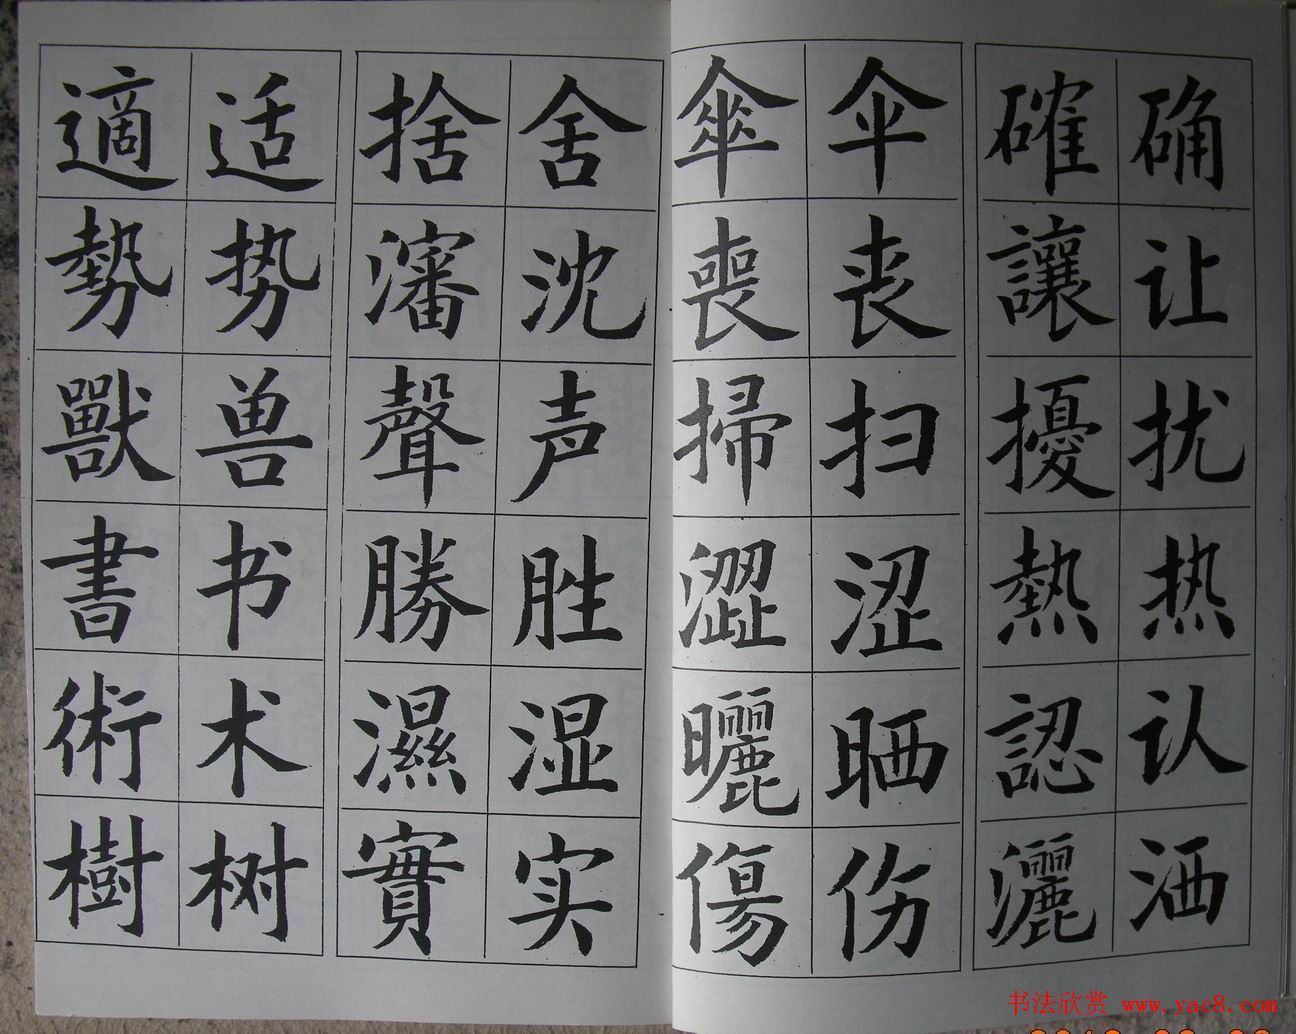 确让扰热认洒
確讓擾熱認灑
伞丧扫涩晒伤
傘喪掃澀曬傷
舍沈声胜湿实
捨瀋聲勝濕實
适势兽书术树
適勢獸書術樹
书法欣赏 www.yac8.com